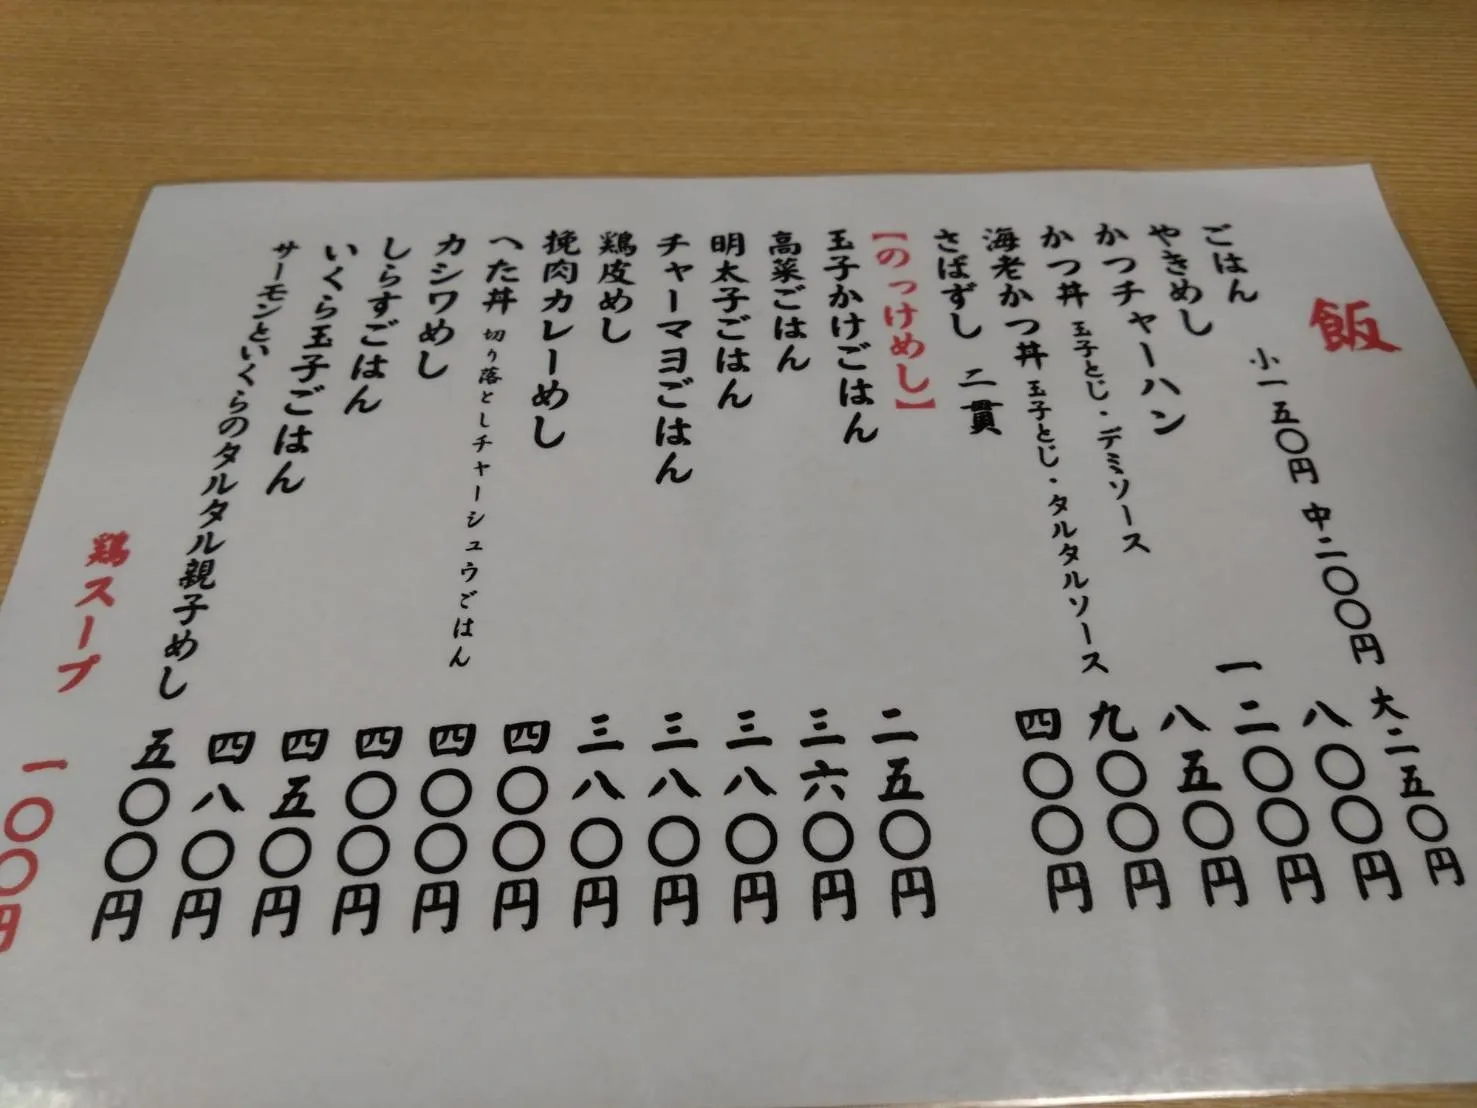 飯
ごはん 小一五〇円 中二〇〇円 大二五〇円
やきめし 八〇〇円
かつチャーハン 一二〇〇円
かつ丼 玉子とじ・デミソース 八五〇円
海老かつ丼 玉子とじ・タルタルソース 九〇〇円
さばずし 二貫 四〇〇円
【のっけめし】
玉子かけごはん 二五〇円
高菜ごはん 三六〇円
明太子ごはん 三八〇円
チャーマヨごはん 三八〇円
鶏皮めし 三八〇円
挽肉カレーめし 四〇〇円
へた丼 切り落としチャーシュウごはん 四〇〇円
カシワめし 四〇〇円
しらすごはん 四五〇円
いくら玉子ごはん 四八〇円
サーモンといくらのタルタル親子めし 五〇〇円
鶏スープ 一〇〇円